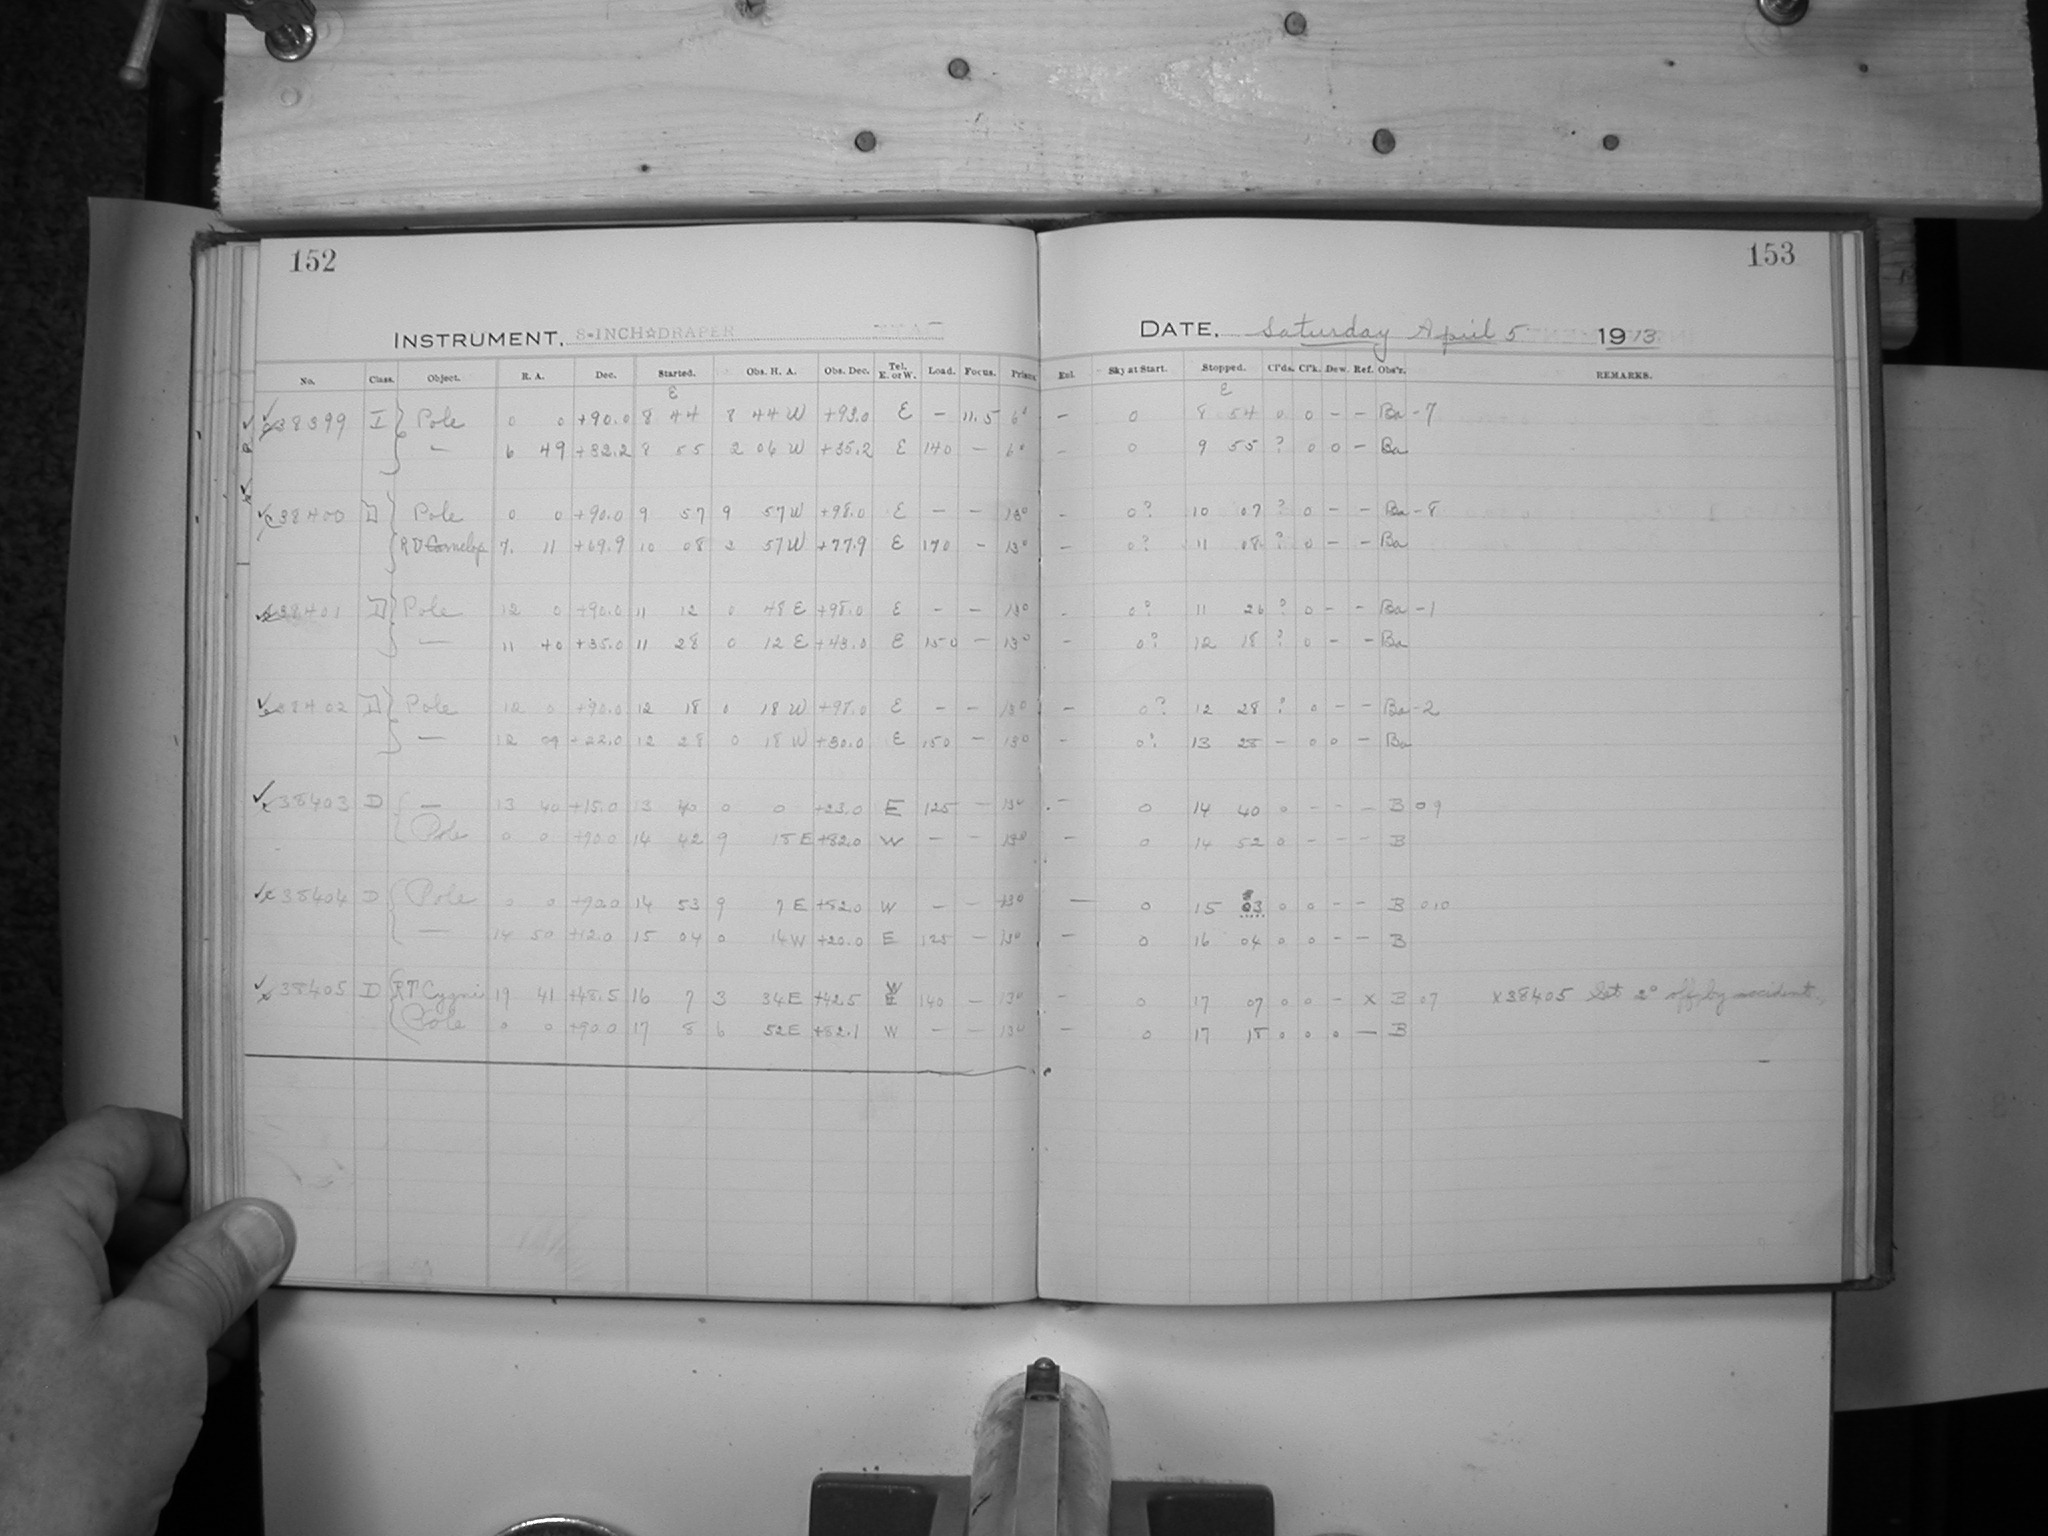 152
INSTRUMENT. 8-INCH☆DRAPER
No. Class. Object. R. A. Dec. Started. Obs. H. A. Obs. Dec. Tel. E. or W. Load. Focus. Prism
E
38399 I Pole 0 0 +90.0 8 44 8 44 W +93.0 E – 11.5 6°
— 6 49 +32.2 8 55 2 06 W +35.2 E 140 – 6°
38400 D Pole 0 0 +90.0 9 57 9 57 W +98.0 E – – 13°
R U Camelop 7. 11 +69.9 10 08 2 57 W +77.9 E 170 – 13°
38401 D Pole 12 0 +90.0 11 12 0 48 E +98.0 E – – 13°
— 11 40 +35.0 11 28 0 12 E +43.0 E 150 – 13°
38402 D Pole 12 0 +90.0 12 18 0 18 W +98.0 E – – 13°
— 12 09 +22.0 12 28 0 18 W +30.0 E 150 – 13°
38403 D — 13 40 +15.0 13 40 0 0 +23.0 E 125 – 13°
Pole 0 0 +90.0 14 42 9 18 E +82.0 W – – 13°
38404 D Pole 0 0 +90.0 14 53 9 7 E +82.0 W – – 13°
— 14 50 +12.0 15 04 0 14 W +20.0 E 125 – 13°
38405 D RT Cygni 19 41 +48.5 16 7 3 34 E +42.5 W 140 – 13°
Pole 0 0 +90.0 17 8 6 52 E +82.1 W – – 13°
153
DATE. Saturday April 5 1913
Eul. Sky at Start. Stopped. Cl'ds. Cl'k. Dew. Ref. Obs'r. REMARKS.
E
– 0 8 54 0 0 – – Ba – 7
– 0 9 55 ? 0 0 – Ba
– 0? 10 07 ? 0 – – Ba – 8
– 0? 11 08 ? 0 – – Ba
– 0? 11 26 ? 0 – – Ba – 1
– 0? 12 18 ? 0 – – Ba
– 0? 12 28 ? 0 – – Ba – 2
– 0? 13 28 – 0 0 – Ba
– 0 14 40 0 – – – B 09
– 0 14 52 0 – – – B
— 0 15 03 0 0 – – B 010
– 0 16 04 0 0 – – B
– 0 17 07 0 0 – X B 07 X38405 Set 2° off by accident.
– 0 17 18 0 0 0 — B